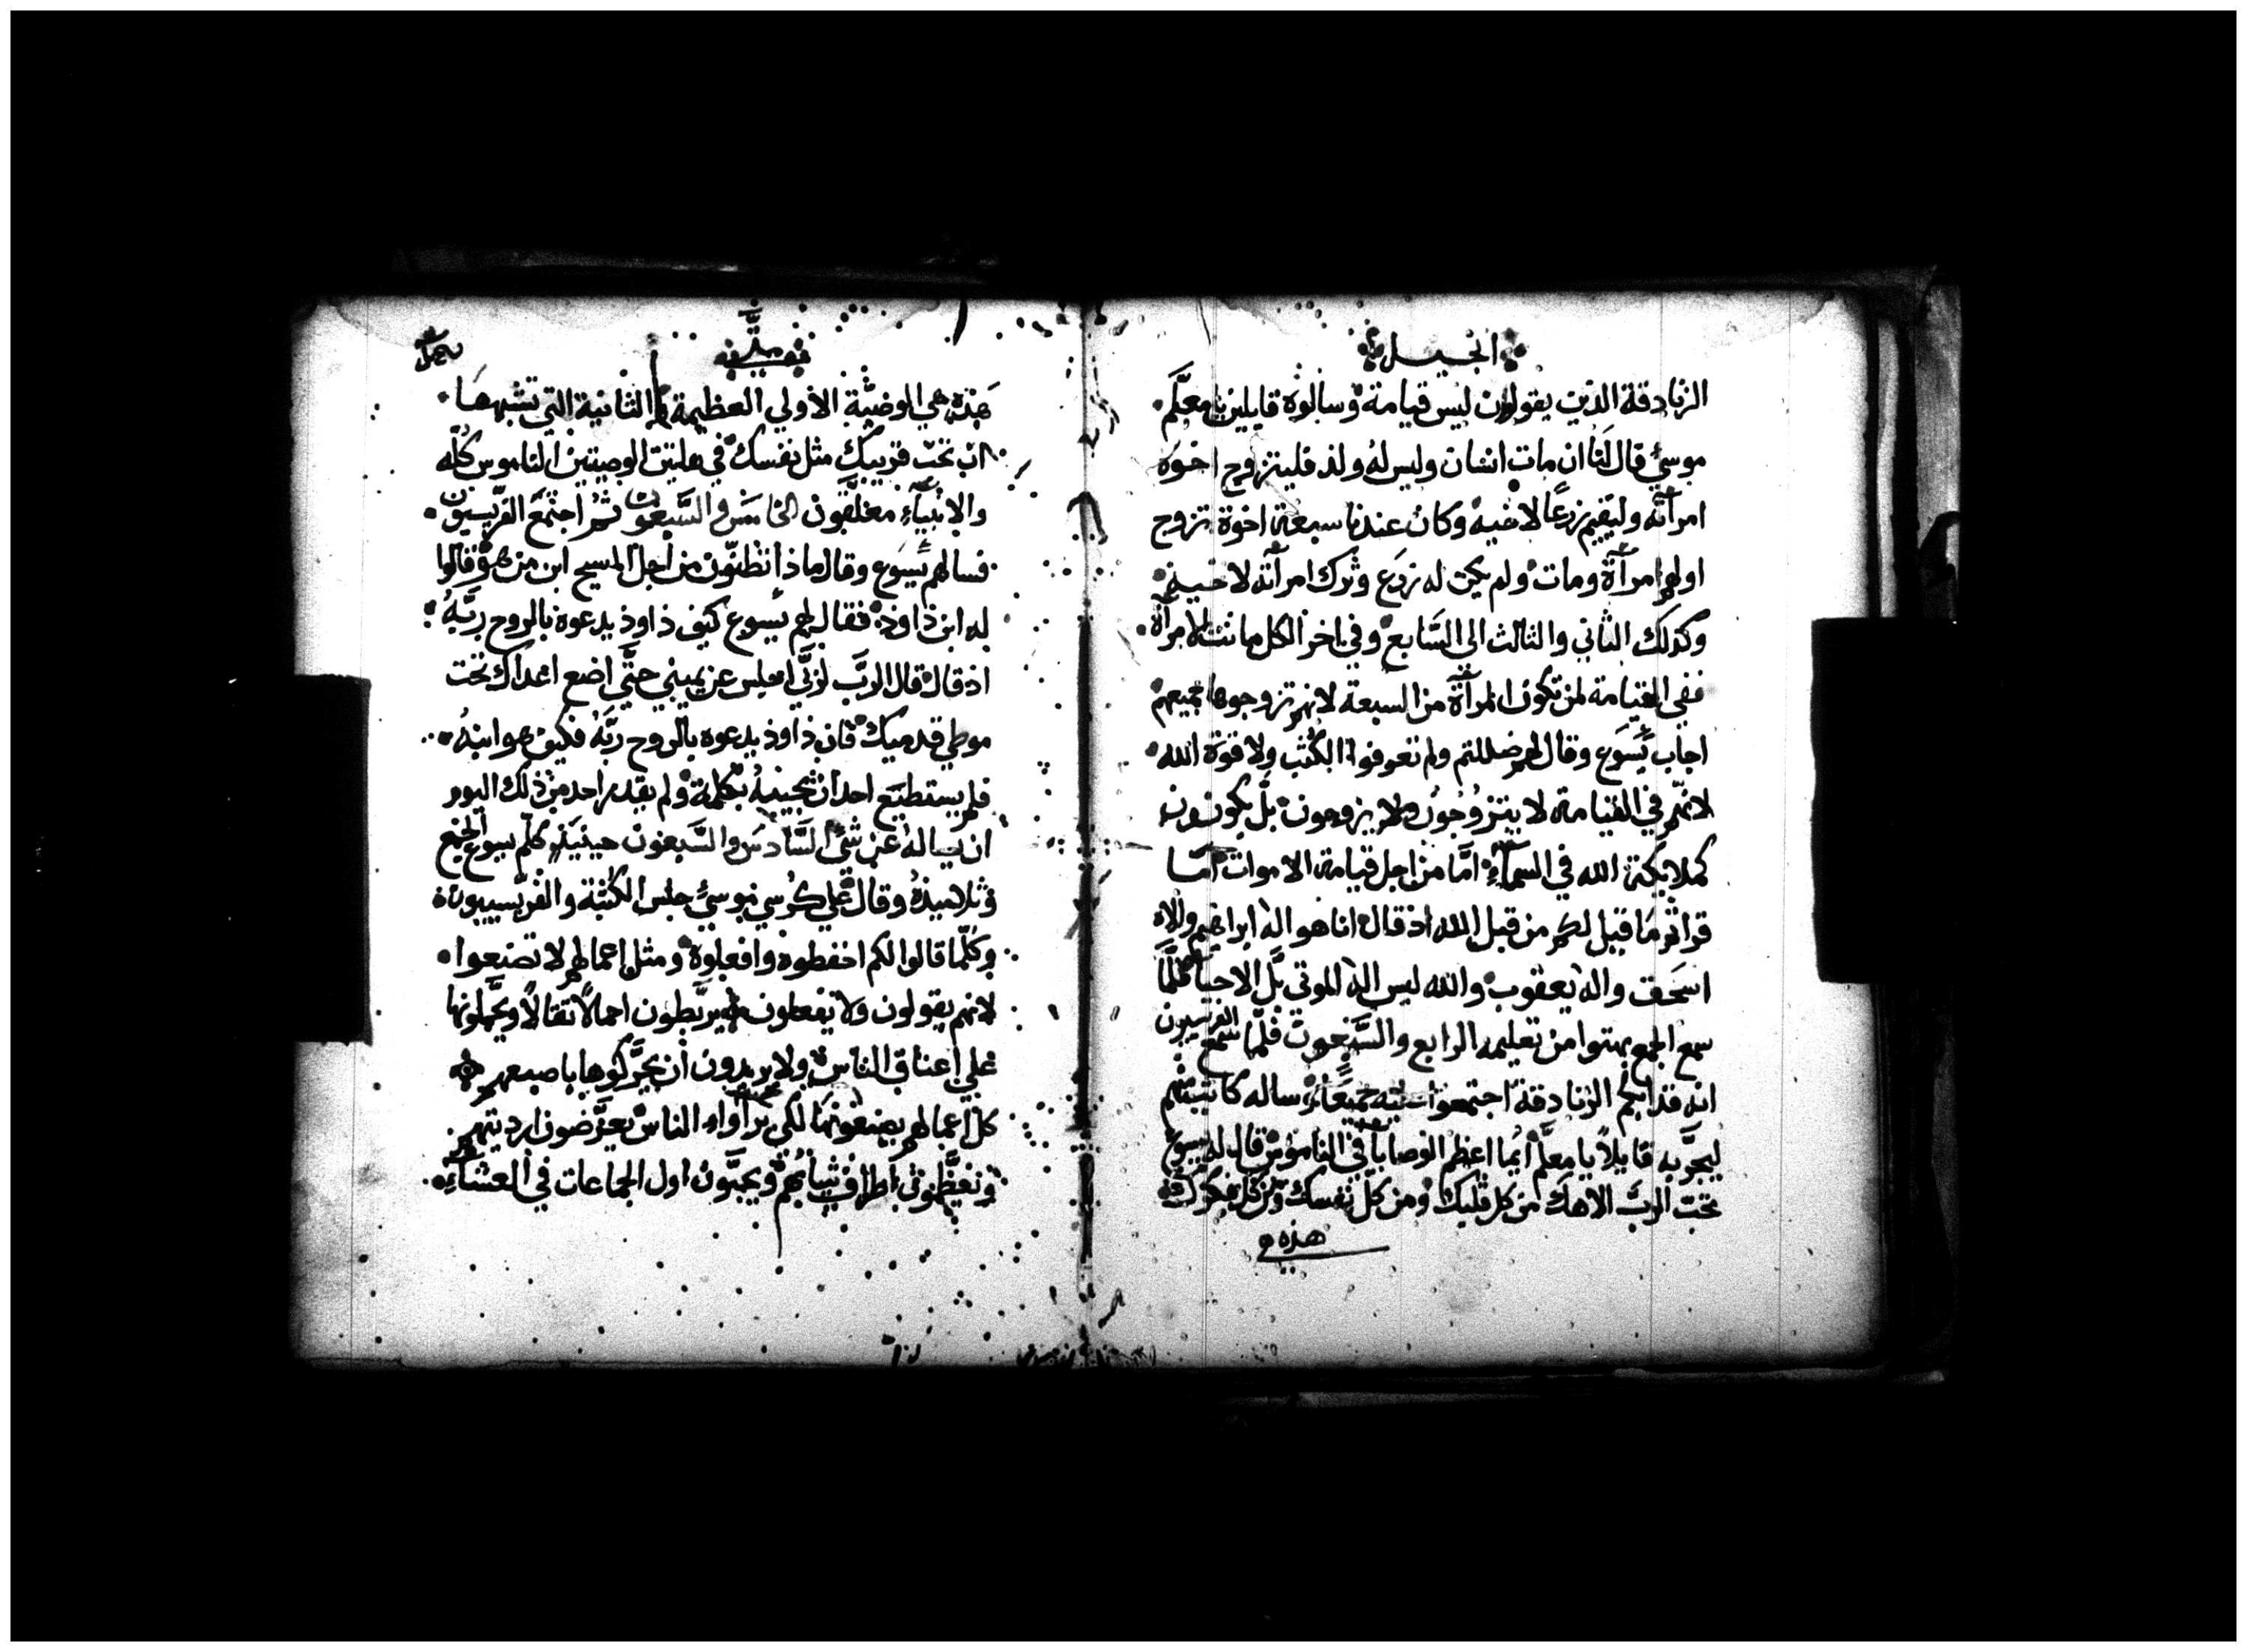 انجيل
الزنادقة الذين يقولون ليس قيامة وسالوه قايلين يا معلّم
موسيٰ قال لنا ان مات انسان وليس له ولد فليتزوج اخوه
امرأته وليقيم زرعًا لاخيه وكان عندنا سبعة اخوة تزوج
اولهم امرأة ومات ولم يكن له زرع وترك امرأته لاخيه
وكذلك الثاني والثالث الى السَّابع وفي اخر الكل ماتت الامرأة
ففي القيامة لمن تكون المرأة من السبعة لانهم تزوجوها جميعهم
اجاب يسوع وقال لهم ضللتم ولم تعرفوا الكتب ولا قوة الله
لانّهم في القيامة لا يتزوجون ولا يزوجون بل يكونون
كملايكة الله في السمآء امّا من اجل قيامة الاموات امَا
قراتم ما قيل لكم من قبل الله اذ قال انا هو اله ابراهيم واله
اسحق واله يعقوب والله ليس اله الموتي بل الاحيا فلمّا
سمع الجمع بهتوا من تعليمه الرابع والسَّبعون فلمّا سمع الفريسيون
انه قد ابكم الزنادقة اجتمعوا اليه جميعًا وساله كاتب منهم
ليجرّبه قايلاً يا معلّم ايما اعظم الوصايا في الناموس قال له يسوع
تحبّ الربّ الاهك من كل قلبك ومن كل نفسك ومن كل فكرك
هذه
متَّى
هذه هي الوصيّة الاولي العظيمة الثانية التي تشبهها
ان تحبّ قريبك مثل نفسك في هاتين الوصيتين الناموس كلّه
والانبيآء معلّقون الخامس والسَّبعون ثم اجتمع الفرّيسيون
فسالهم يسوع وقال ماذا تظنّون من اجل المسيح ابن من هو قالوا
له ابن داوذ فقال لهم يسوع كيف داوذ يدعوه بالروح ربَّهُ
اذ قال قال الربّ لربّي اجلس عن يميني حتّي اضع اعداك تحت
موطي قدميك فان داوذ يدعوه بالروح ربَّهُ فكيف هو ابنهُ
فلم يستطيع احدا ان يجيبهُ بكلمة ولم يقدر احد من ذلك اليوم
ان يساله عن شي السَّادس والسَّبعون حينيذ كلّم يسوع الجمع
وتلاميذهُ وقال علي كرسي موسيٰ جلس الكتبة والفرّيسيون
وكلّما قالوا لكم احفظوه وافعلوه ومثل اعمالهم لا تصنعوا
لانهم يقولون ولا يفعلون يربّطون احمالاً ثقالاً ويحمّلونها
علي اعناق الناس ولا يريدون ان يحرّكوها باصبعهم
كل اعمالهم يصنعونها لكي يراوا الناس يعرّضون ارديتهم
ويعظّمون اطراف ثيابهم ويحبّون اول الجماعات في العشآء